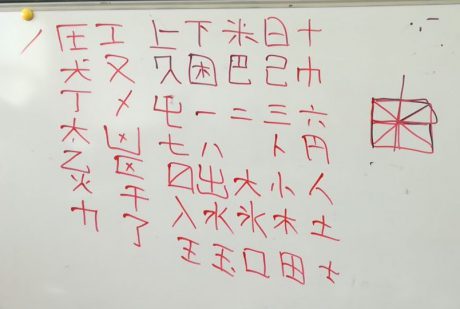 ノ 圧 工 上 下 米 日 十
犬 又 久 困 巴 己 巾
丁 メ 屯 一 二 三 六
太 凶 七 八 ト 円
乙 区 出 大 小 人
火 干 入 水 氷 木 土
カ 了 王 玉 口 田 士